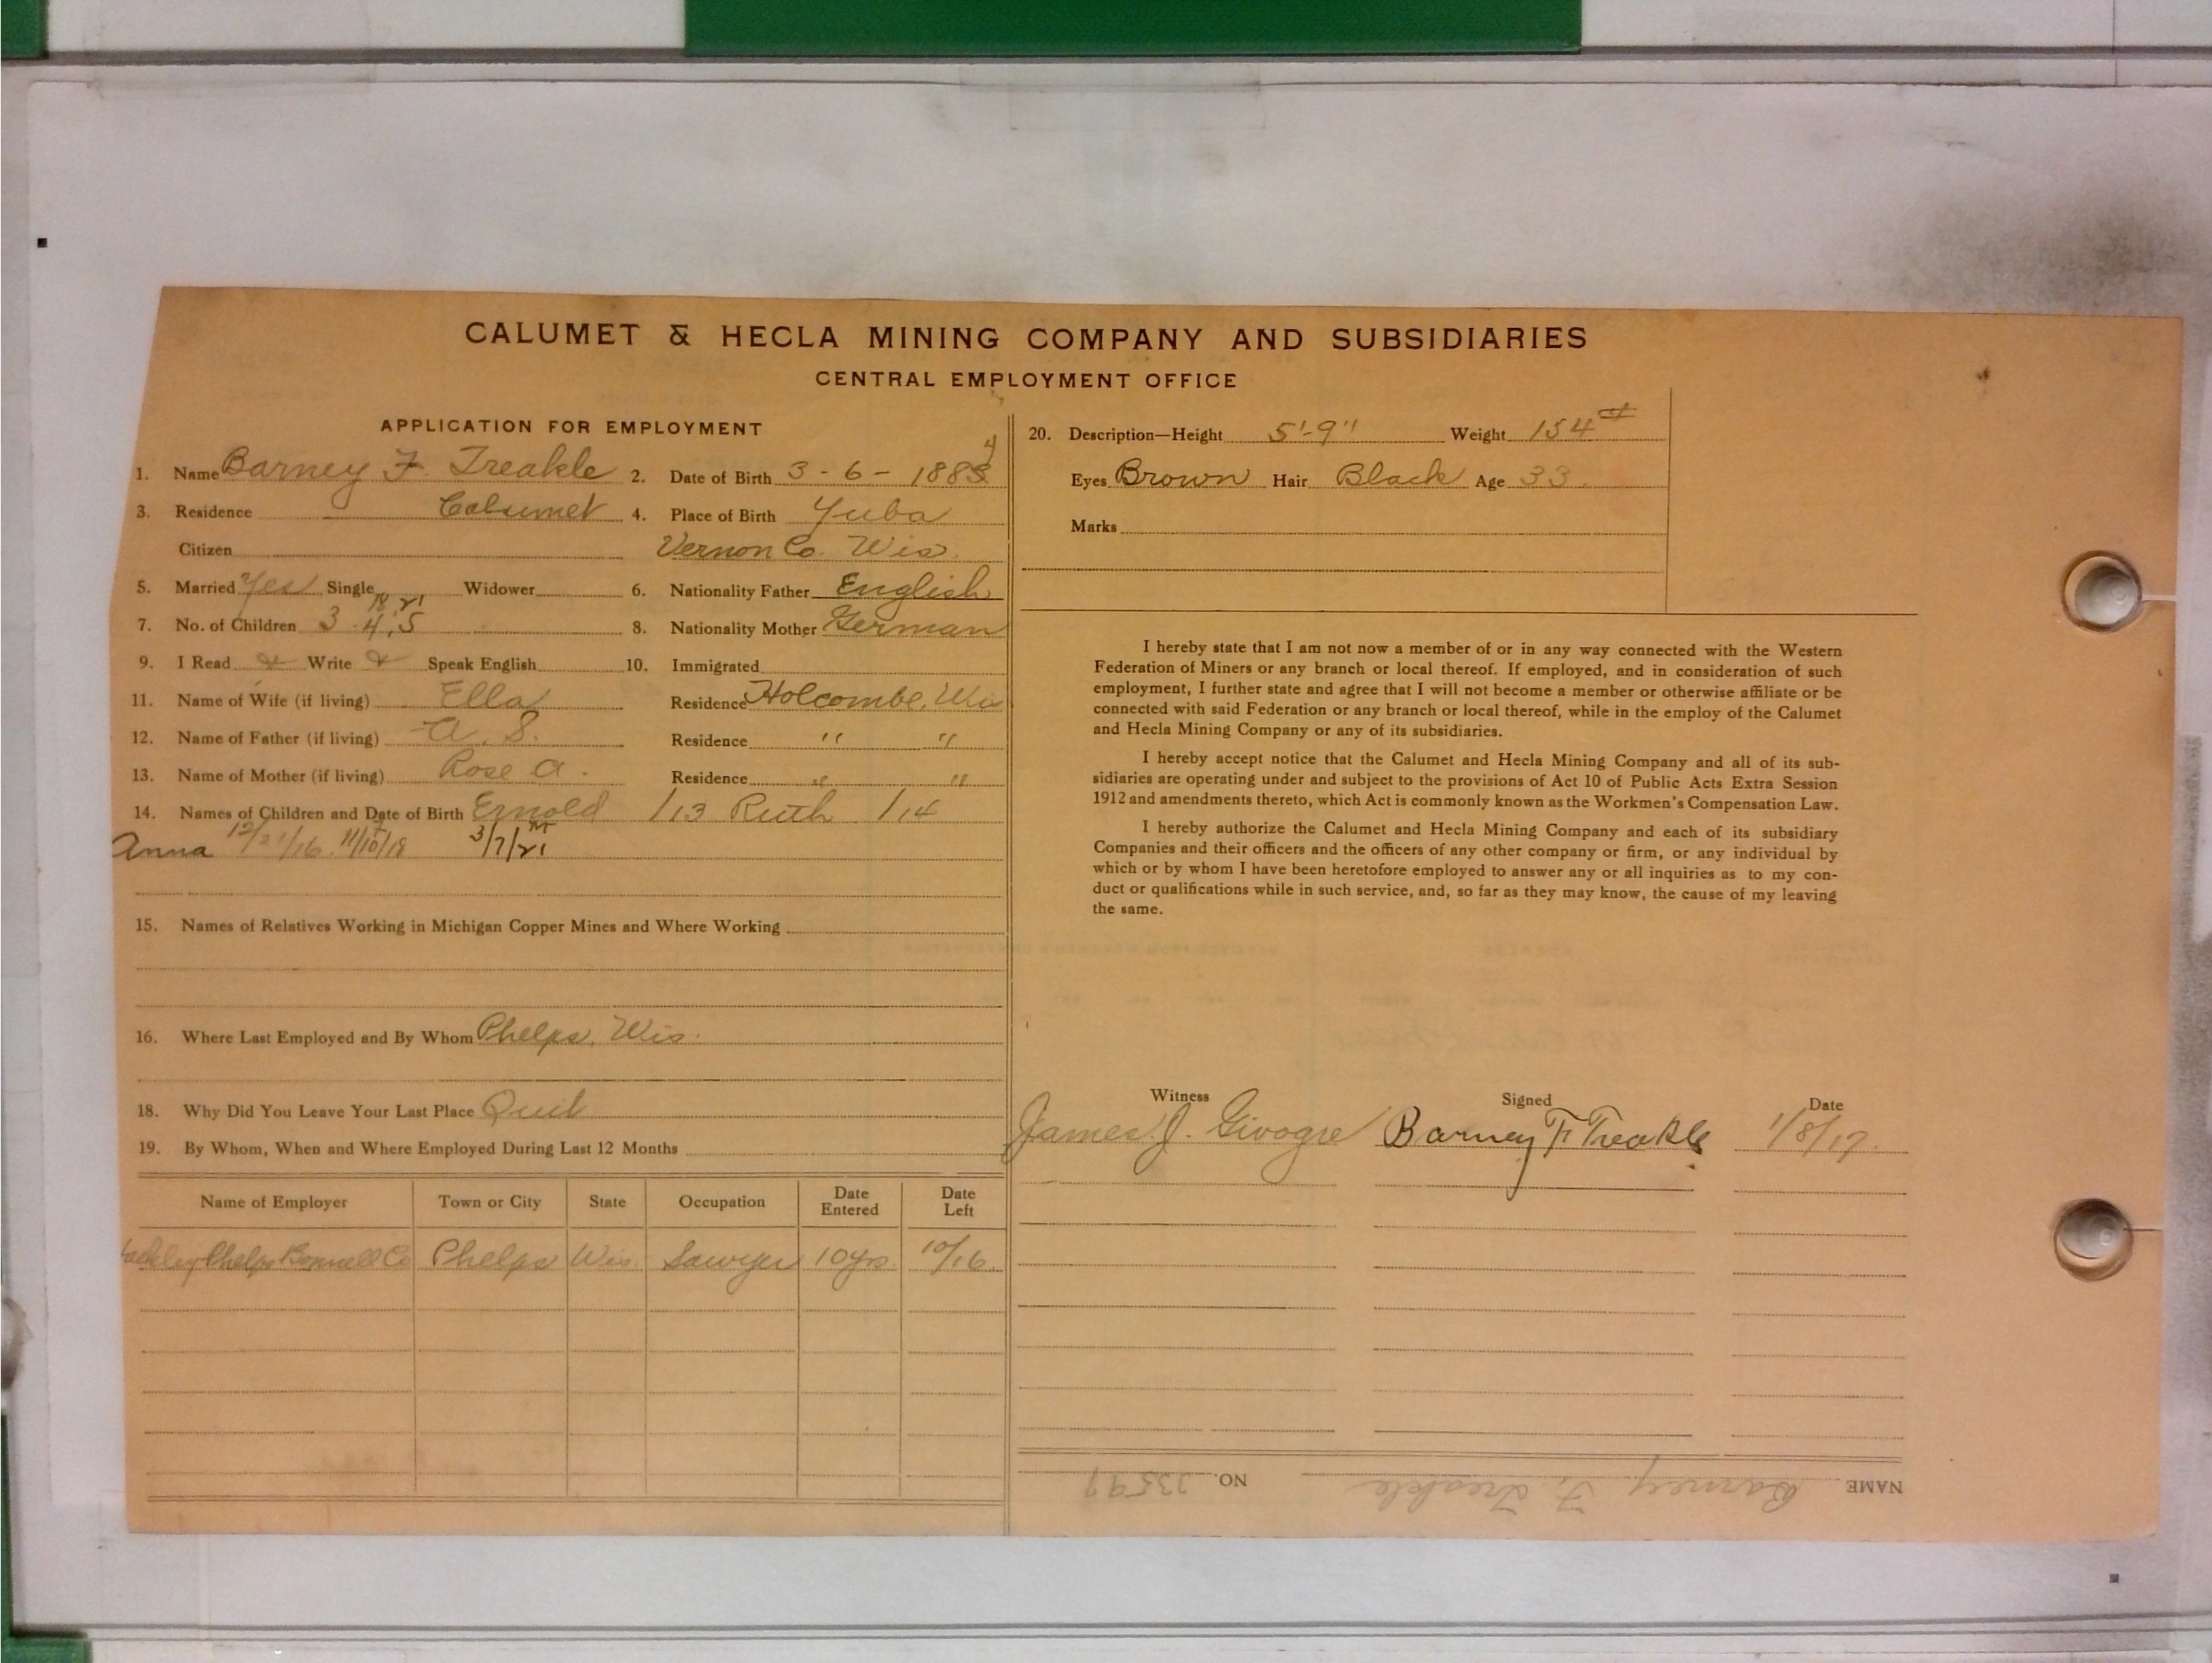 CALUMET & HECLA MINING COMPANY AND SUBSIDIARIES
CENTRAL EMPLOYMENT OFFICE
APPLICATION FOR EMPLOYMENT
1. Name Barney F. Treakle 2. Date of Birth 3-6-1883 4
3. Residence Calumet 4. Place of Birth Yuba
Citizen Vernon Co. Wis.
5. Married Yes Single Widower 6. Nationality Father English
18 21
7. No. of Children 3 4, 5 8. Nationality Mother German
9. I Read & Write & Speak English 10. Immigrated
11. Name of Wife (if living) Ella Residence Holcombe, Wis
12. Name of Father (if living) A. S. Residence " "
13. Name of Mother (if living) Rose A. Residence " "
14. Names of Children and Date of Birth Ernold /13 Ruth /14
Anna 12/21/16 11/10/18 3/7/21
15. Names of Relatives Working in Michigan Copper Mines and Where Working
16. Where Last Employed and By Whom Phelps, Wis.
18. Why Did You Leave Your Last Place Quit
19. By Whom, When and Where Employed During Last 12 Months
Name of Employer Town or City State Occupation Date Entered Date Left
Phelps Bonnell Co Phelps Wis. Sawyer 10 yrs. 10/16.
20. Description—Height 5'-9" Weight 154 #
Eyes Brown Hair Black Age 33.
Marks
I hereby state that I am not now a member of or in any way connected with the Western
Federation of Miners or any branch or local thereof. If employed, and in consideration of such
employment, I further state and agree that I will not become a member or otherwise affiliate or be
connected with said Federation or any branch or local thereof, while in the employ of the Calumet
and Hecla Mining Company or any of its subsidiaries.
I hereby accept notice that the Calumet and Hecla Mining Company and all of its sub-
sidiaries are operating under and subject to the provisions of Act 10 of Public Acts Extra Session
1912 and amendments thereto, which Act is commonly known as the Workmen's Compensation Law.
I hereby authorize the Calumet and Hecla Mining Company and each of its subsidiary
Companies and their officers and the officers of any other company or firm, or any individual by
which or by whom I have been heretofore employed to answer any or all inquiries as to my con-
duct or qualifications while in such service, and, so far as they may know, the cause of my leaving
the same.
Witness Signed Date
James J. Givogre Barney F Treakle 1/8/17.
NAME Barney F. Treakle NO. 33597